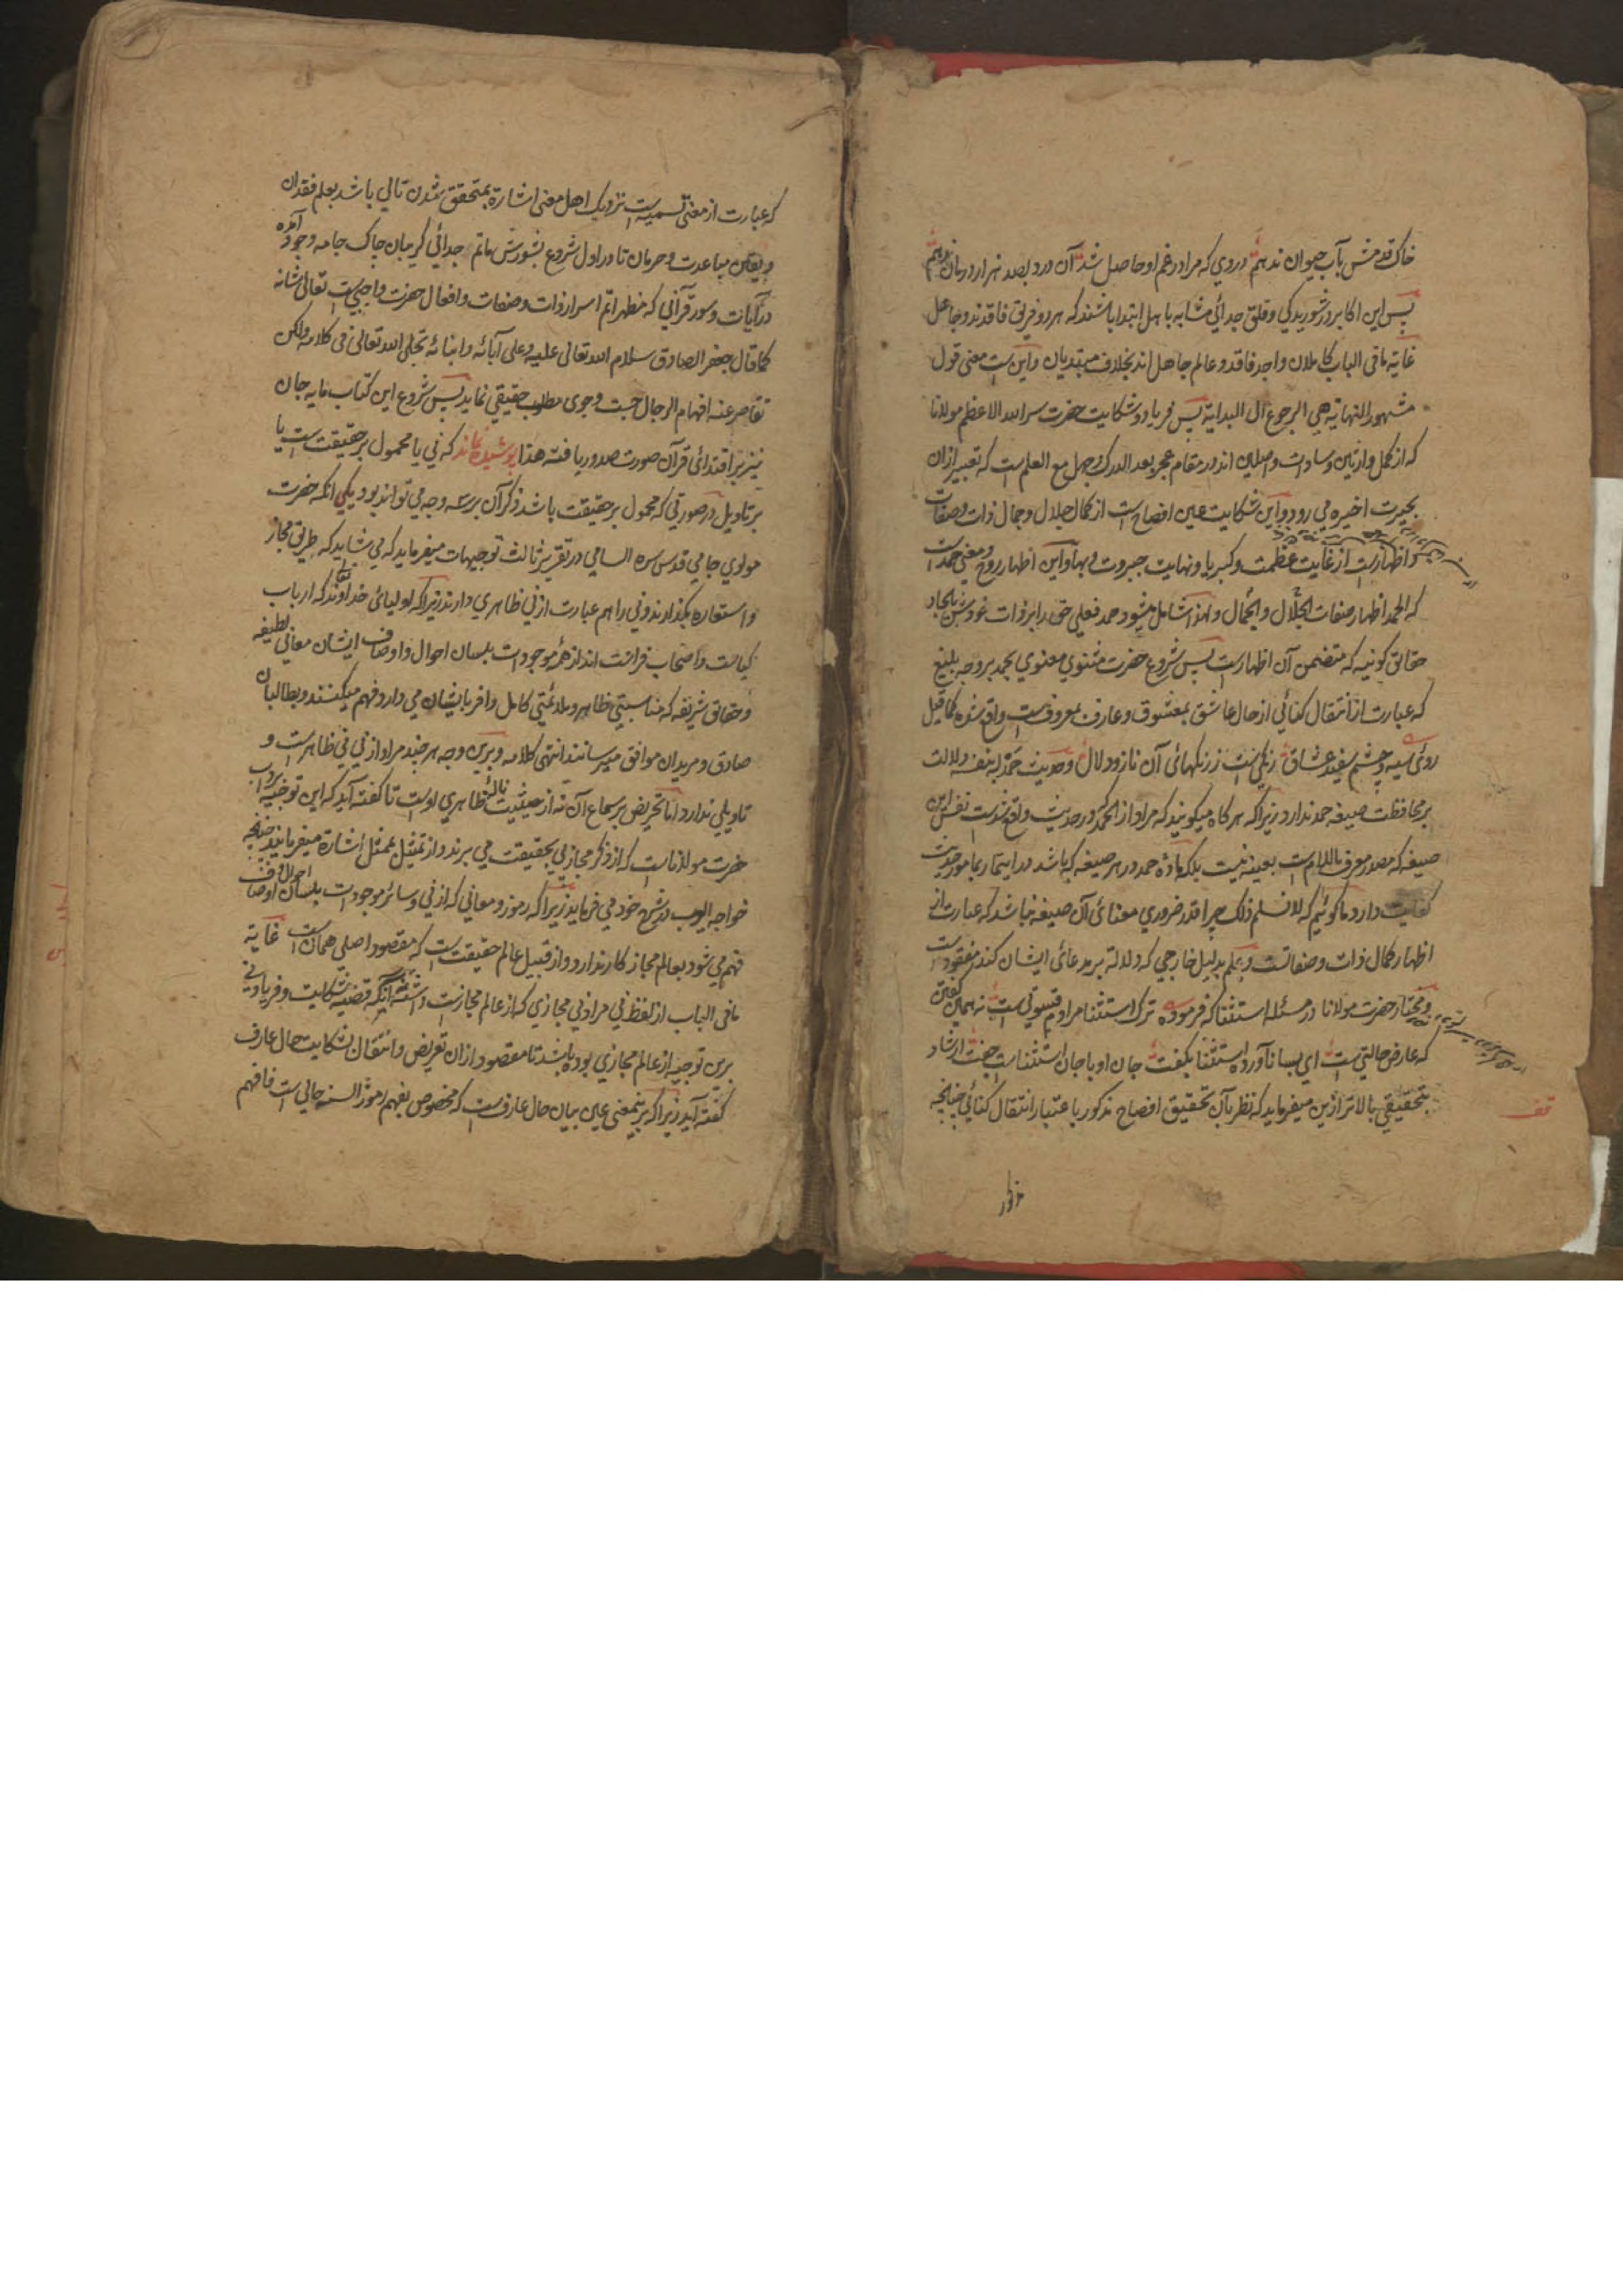 خاک قدمش بآب حیوان ندهم دردی که مرا در غم او حاصل شد آن درد بصد هزار درمان ندهم
پس این اکابر در شوریدگی و قلق جدائی مشابه باهل ابتدا باشند که هر دو فریق فاقدند و جاهل
غایة ما فی الباب کاملان واجد فاقد و عالم جاهل اند بخلاف مبتدیان و این ست معنی قول
مشهور النهایة هی الرجوع الی البدایة پس فریاد و شکایت حضرت سر الله الاعظم مولانا
که از کمل وارثین و سادات واصلین اند در مقام عجز بعد الدرک و جهل مع العلم است که تعبیر ازان
بحیرت اخیره می رود و این شکایت عین افصاح ست از کمال جلال و جمال ذات و صفات
و اظهارست از غایت عظمت و کبریا و نهایت جبروت و بها و این اظهار روح و معنی حمد است
که الحمد اظهار صفات الجلال و الجمال و لهذا شامل میشود حمد فعلی حق را بر ذات خودش بایجاد
حقائق کونیه که متضمن آن اظهارست پس شروع حضرت مثنوی معنوی بحمد بر وجه بلیغ
که عبارت از انتقال کنائی از حال عاشق بمعشوق و عارف بمعروف ست واقع شده کما قیل
روئی سیه و چشم سفید عشاق رنگی ست ز رنگهائی آن ناز و دلال و حدیث حمد له بنفسه دلالت
بر محافظت صیغه حمد ندارد زیراکه هر گاه میگویند که مراد از الحمد که در حدیث واقع شدست نفس این
صیغه که مصدر معرف باللام ست بعینه نیست بلکه ماده حمد در هر صیغه که باشد در ابتدا بمامور حدیث
کفایت دارد ما گوئیم که لا نسلم ذلک چرا قدر ضروری معنائی آن صیغه نباشد که عبارت از
اظهار کمال ذات و صفاتست و علم بدلیل خارجی که دلالة بر مدعائی ایشان کند مفقود است
و مختار حضرت مولانا در مسئله استثنا که فرموده ترک استثنا مرادم قسوتی ست نه همین گفتن
که عارض حالتی ست ای بسا ناآورده استثنا بگفت جان او با جان استثناست جفت ارشاد
بتحقیقی بالاتر ازین میفرماید که نظر بآن تحقیق افصاح مذکور با عتبار انتقال کنائی چنانچه
که عبارت از معنی تسمیه ست نزدیک اهل معنی اشارة بمتحقق شدن تالی باشد بعلم فقدان
و یقین مباعدت و حرمان تا در اول شروع بشورش ماتم جدائی گریبان چاک جامه وجود آمده
در آیات و سور قرآنی که مظهر اتم اسرار ذات و صفات و افعال حضرت واجبی ست تعالی شانه
کما قال جعفر الصادق سلام الله تعالی علیه و علی آبائه و ابنائه تجلی الله تعالی فی کلامه ولکن
تقاصر عنه افهام الرجال جست و جوی مطلوب حقیقی نماید پس شروع این کتاب مایه جان
نیز بر اقتدائی قرآن صورت صدور یافته هذا پوشیده نماند که نی یا محمول بر حقیقت ست یا
بر تاویل در صورتی که محمول بر حقیقت باشد ذکر آن بر سه وجه می تواند بود یکی انکه حضرت
مولوی جامی قدس سره السامی در تقریر ثالث توجیهات میفرماید که می شاید که طریق مجاز
و استعاره بگذارند و نی را هم عبارت از نی ظاهری دارند زیراکه اولیائی خداوند که ارباب
کیاست و اصحاب فراست اند از همه موجودات بلسان احوال و اوصاف ایشان معانی لطیفه
و حقائق شریفه که مناسبتی ظاهر و ملائمتی کامل وافر بایشان می دارد فهم میکنند و بطالبان
صادق و مریدان موافق میرسانند انتهی کلامه و برین وجه هر چند مراد از نی نی ظاهرست و
تاویلی ندارد اما تحریض بر سماع آن نه از حیثیت ناله ظاهری اوست تا گفته آید که این توجیه
حضرت مولاناست که از ذکر مجاز پی بحقیقت می برند و از تمثیل بممثل اشارة میفرمایند چنانچه
خواجه ایوب در شرح خود می فرماید زیراکه رموز و معانی که از نی و سائر موجودات بلسان احوال و اوصاف
فهم می شود بعالم مجاز کار ندارد و از قبیل عالم حقیقت ست که مقصود اصلی همان ست غایة
ما فی الباب از لفظ نی مراد نی مجازی که از عالم مجازست داشته آنکه قضیه شکایت و فریاد نی
برین توجیه از عالم مجازی بوده باشد تا مقصود ازان تعریض و انتقال بشکایت حال عارف
گفته آید زیراکه برینمعنی عین بیان حال عارف ست که مخصوص بفهم رموز السنه حالی ست فافهم